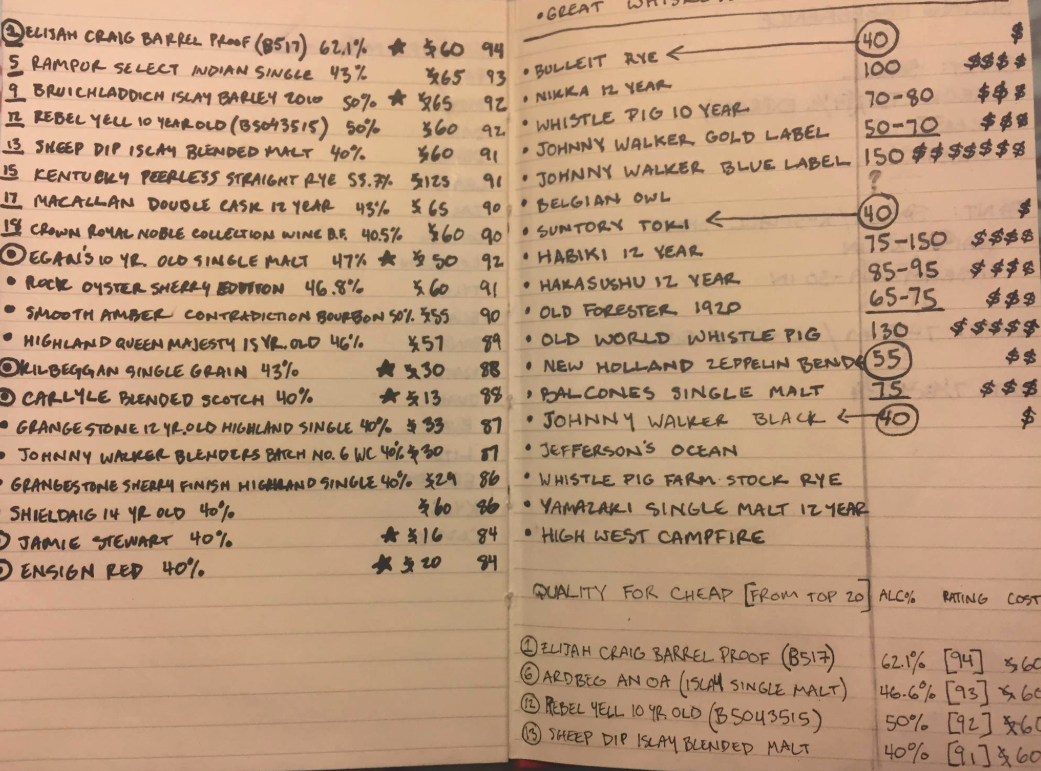 ① ELIJAH CRAIG BARREL PROOF (B517) 62.1% ★ $60 94
5 RAMPUR SELECT INDIAN SINGLE 43% $65 93
9 BRUICHLADDICH ISLAY BARLEY 2010 50% ★ $65 92
12 REBEL YELL 10 YEAR OLD (B5043515) 50% $60 92
13 SHEEP DIP ISLAY BLENDED MALT 40% $60 91
15 KENTUCKY PEERLESS STRAIGHT RYE 55.7% $125 91
17 MACALLAN DOUBLE CASK 12 YEAR 43% $65 90
18 CROWN ROYAL NOBLE COLLECTION WINE B.F. 40.5% $60 90
EGAN'S 10 YR. OLD SINGLE MALT 47% ★ $50 92
• ROCK OYSTER SHERRY EDITION 46.8% $60 91
• SMOOTH AMBER CONTRADICTION BOURBON 50% $55 90
• HIGHLAND QUEEN MAJESTY 15 YR. OLD 46% $57 89
KILBEGGAN SINGLE GRAIN 43% ★ $30 88
CARLYLE BLENDED SCOTCH 40% ★ $13 88
• GRANGESTONE 12 YR. OLD HIGHLAND SINGLE 40% $33 87
• JOHNNY WALKER BLENDERS BATCH NO. 6 WC 40% $30 87
• GRANGESTONE SHERRY FINISH HIGHLAND SINGLE 40% $29 86
SHIELDAIG 14 YR OLD 40% $60 86
JAMIE STEWART 40% ★ $16 84
ENSIGN RED 40% ★ $20 84
• GREAT
• BULLEIT RYE ← 40 $
• NIKKA 12 YEAR 100 $$$$
• WHISTLE PIG 10 YEAR 70-80 $$$
• JOHNNY WALKER GOLD LABEL 50-70 $$$
• JOHNNY WALKER BLUE LABEL 150 $$$$$$$
• BELGIAN OWL ?
• SUNTORY TOKI ← 40 $
• HABIKI 12 YEAR 75-150 $$$$
• HAKASUSHU 12 YEAR 85-95 $$$$
• OLD FORESTER 1920 65-75 $$$
• OLD WORLD WHISTLE PIG 130 $$$$$
• NEW HOLLAND ZEPPELIN BEND 55 $$
• BALCONES SINGLE MALT 75 $$$
• JOHNNY WALKER BLACK ← 40 $
• JEFFERSON'S OCEAN
• WHISTLE PIG FARM STOCK RYE
• YAMAZAKI SINGLE MALT 12 YEAR
• HIGH WEST CAMPFIRE
QUALITY FOR CHEAP [FROM TOP 20] ALC% RATING COST
① ELIJAH CRAIG BARREL PROOF (B517) 62.1% [94] $60
⑥ ARDBEG AN OA (ISLAY SINGLE MALT) 46.6% [93] $60
⑫ REBEL YELL 10 YR. OLD (B5043515) 50% [92] $60
⑬ SHEEP DIP ISLAY BLENDED MALT 40% [91] $60